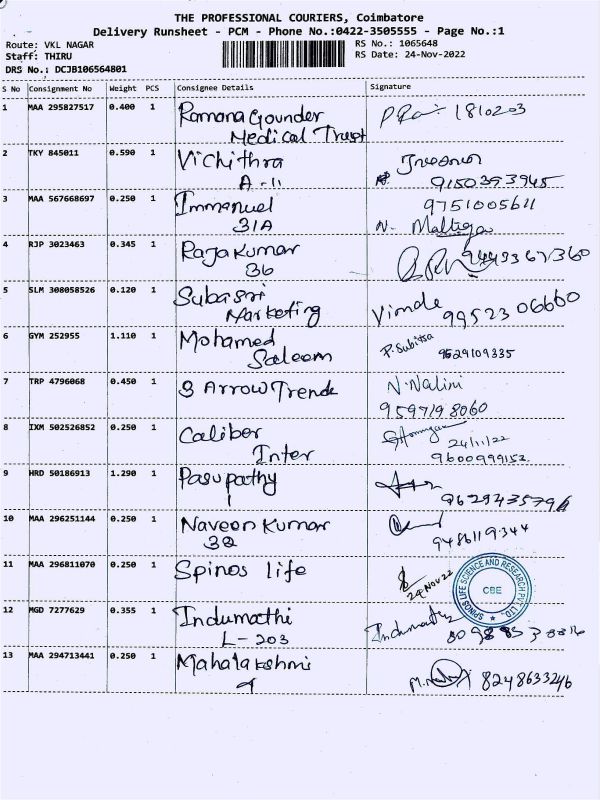 THE PROFESSIONAL COURIERS, Coimbatore
Delivery Runsheet - PCM - Phone No.:0422-3505555 - Page No.:1
Route: VKL NAGAR
RS No.: 1065648
Staff: THIRU
RS Date: 24-Nov-2022
DRS No.: DCJB106564801
S No Consignment No Weight PCS Consignee Details Signature
1 MAA 295827517 0.400 1 Ramana Gounder 1810203
Medical Trust
2 TKY 845011 0.590 1 Vichithra
A-11 9150393945
3 MAA 567668697 0.250 1 Immanuel 9751005611
31A N.
4 RJP 3023463 0.345 1 Raja Kumar
36
5 SLM 308058526 0.120 1 Subasri Vimala
Marketing 9952306660
6 GYM 252955 1.110 1 Mohamed P. Subitsa
Saleem 9629109335
7 TRP 4796068 0.450 1 3 Arrow Trends N. Nalini
9597198060
8 IXM 502526852 0.250 1 Caliber 24/11/22
Inter 9600999152
9 HRD 50186913 1.290 1 Pasupathy
1
10 MAA 296251144 0.250 1 Naveen Kumar
9486119344
11 MAA 296811070 0.250 1 Spinos life
24 Nov 22
SPINOS LIFE SCIENCE AND RESEARCH PVT. LTD.
CBE
12 MGD 7277629 0.355 1 Indumathi Indumathi
L-203
13 MAA 294713441 0.250 1 Mahalakshmi
8248633246